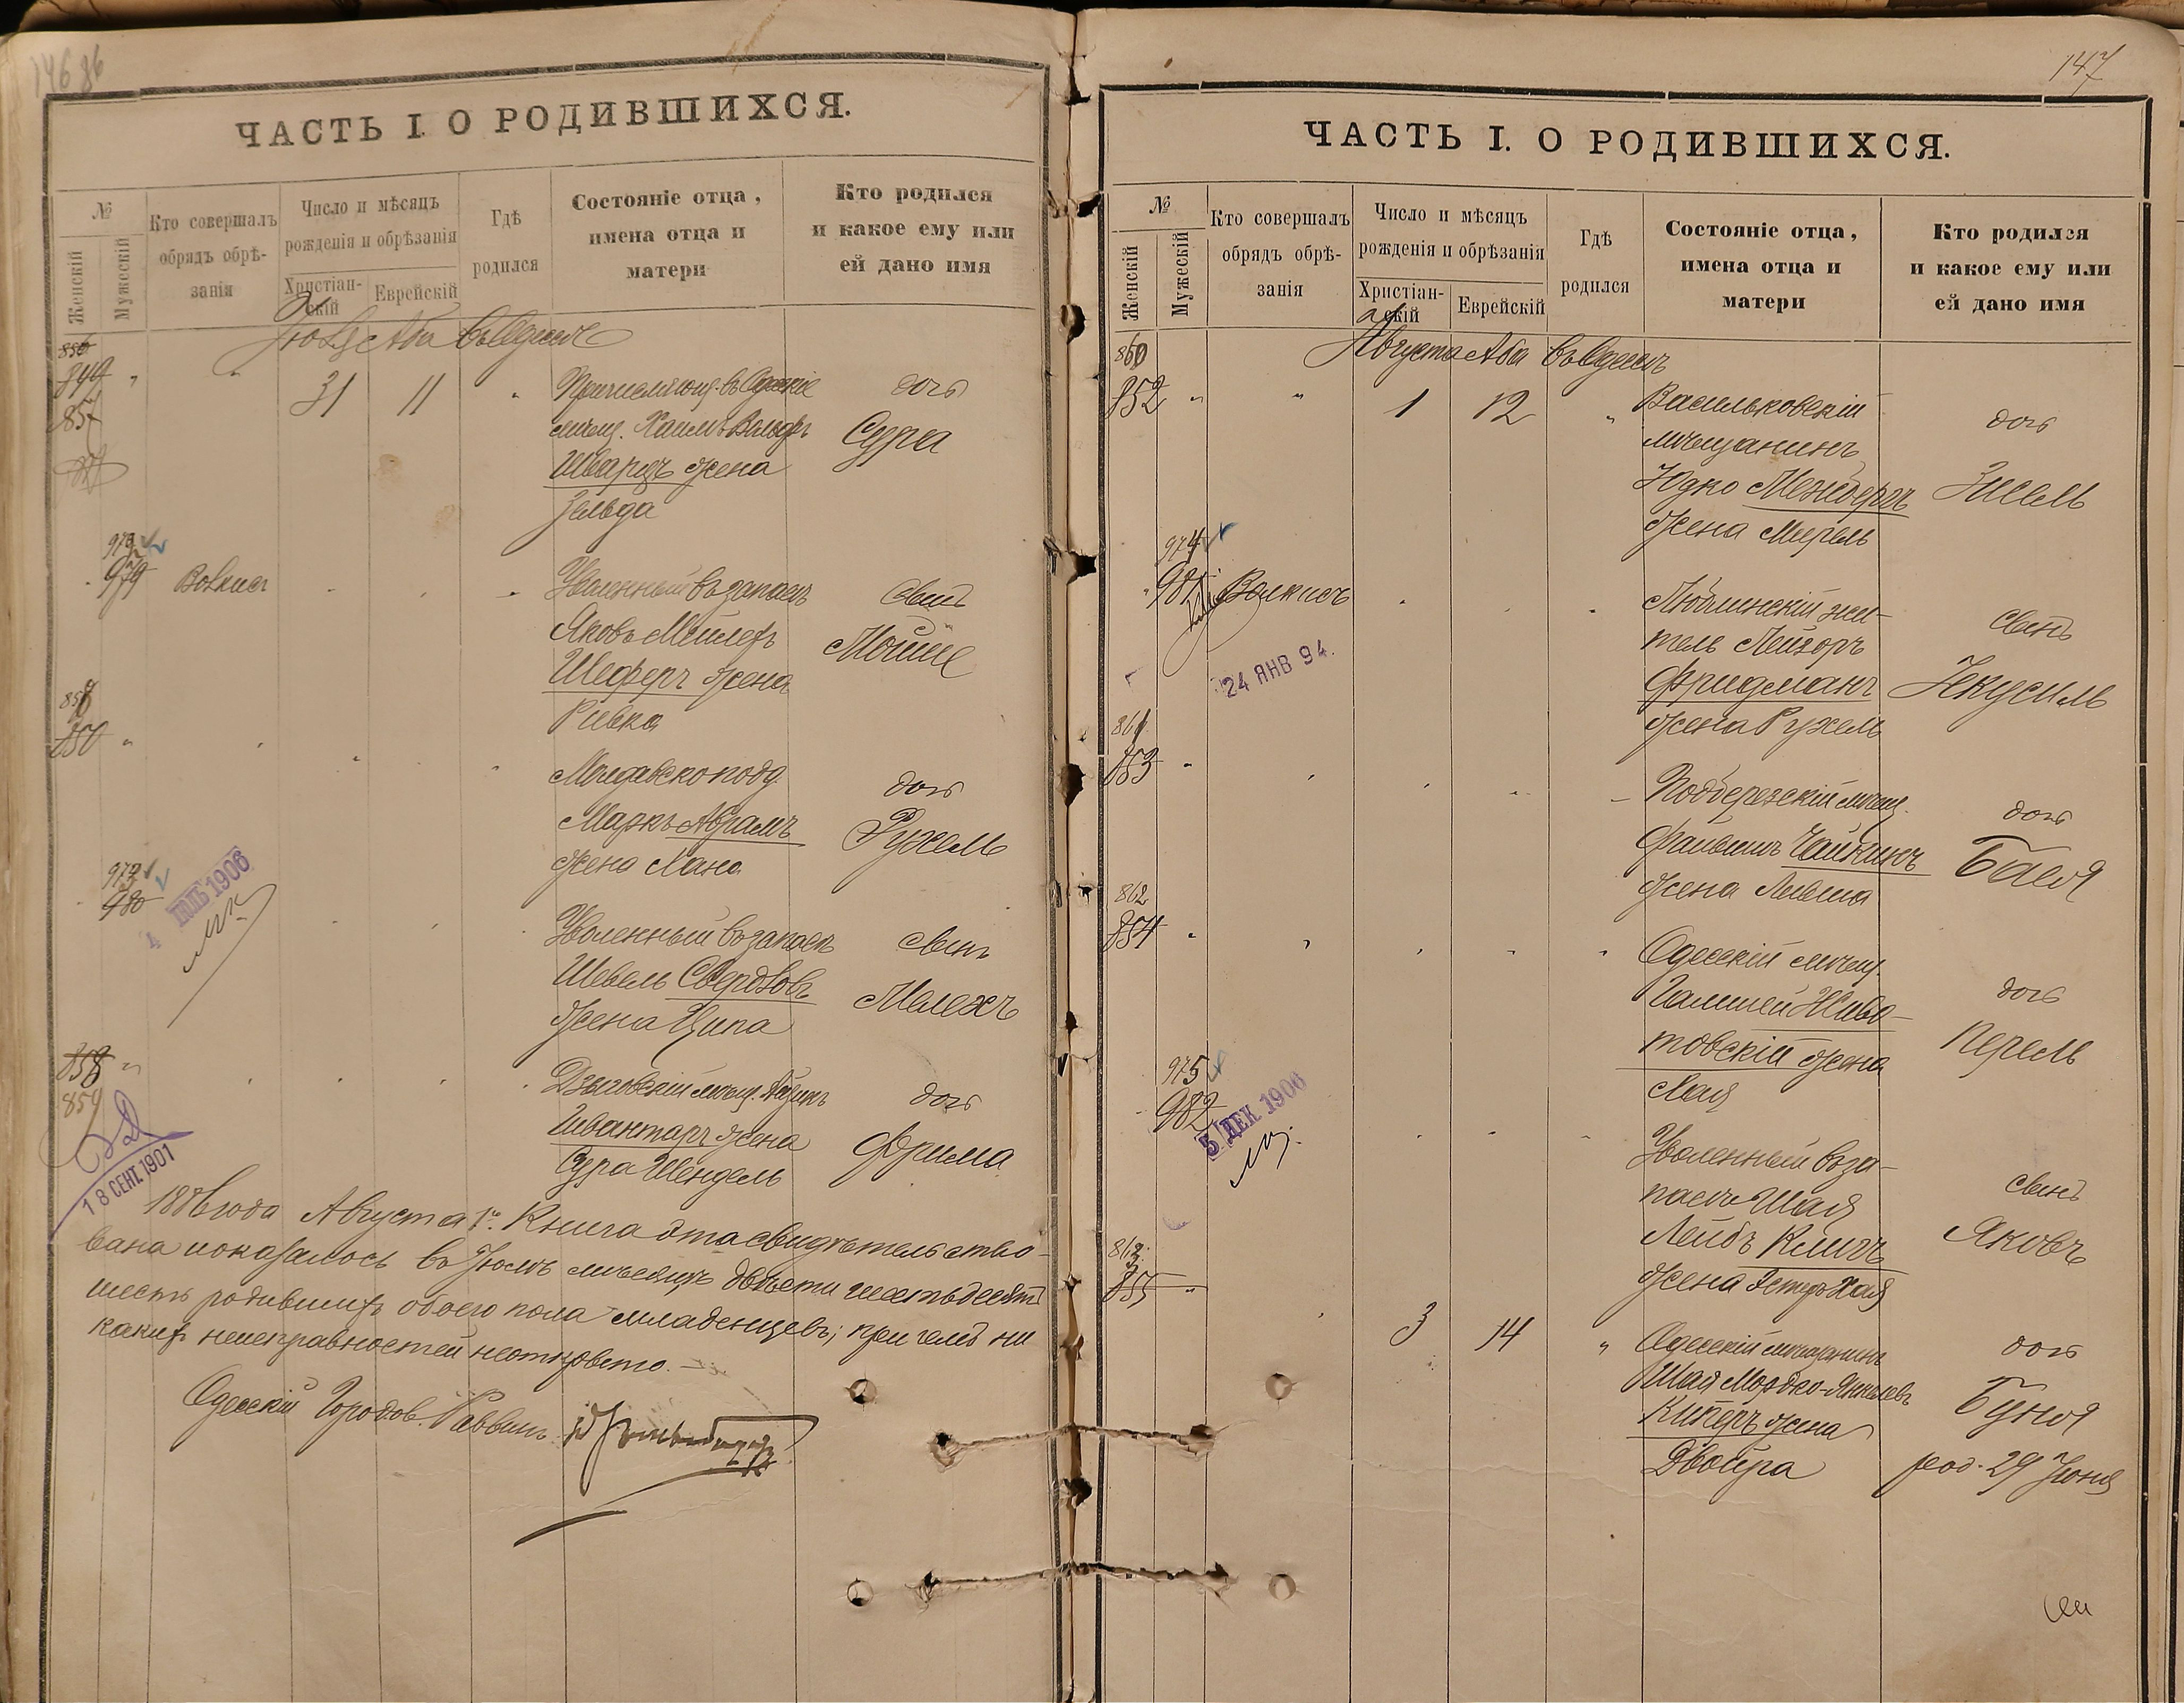 146 86
ЧАСТЬ I. О РОДИВШИХСЯ.
№
Женскій
Мужескій
Кто совершалъ
обрядъ обрѣ-
занія
Число и мѣсяцъ
рожденія и обрѣзанія
Христіан-
скій
Еврейскій
Гдѣ
родился
Состояніе отца,
имена отца и
матери
Кто родился
и какое ему или
ей дано имя
Іюль Аба въ Одессѣ
849
857
31 11
мѣщ. Хаимъ Вольфъ
Шварцъ жена
Зельда
дочь
Сура
979
Волкисъ
Уволенный въ запасъ
Яковъ Мейлехъ
Шеферъ жена
Ривка
сынъ
Мойше
858
850
Молдавскоподд.
Маркъ Абрамъ
жена Хана
дочь
Рухель
973
980
4 ІЮЛЬ 1906
Уволенный въ запасъ
Шевель Свердловъ
жена Ципа
сынъ
Мелехъ
858
859
18 СЕНТ. 1901
Швантаръ жена
Сура Шендель
дочь
Фрима
188 года Августа 1го. Книга эта свидѣтельство-
вана и оказалось въ Іюлѣ мѣсяцѣ двѣсти шестьдесятъ
шесть родившихъ обоего пола младенцевъ; при чемъ ни
какихъ неисправностей неоткрыто. —
Одесскій Городов. Раввинъ
147
ЧАСТЬ I. О РОДИВШИХСЯ.
№
Женскій
Мужескій
Кто совершалъ
обрядъ обрѣ-
занія
Число и мѣсяцъ
рожденія и обрѣзанія
Христіан-
скій
Еврейскій
Гдѣ
родился
Состояніе отца,
имена отца и
матери
Кто родился
и какое ему или
ей дано имя
Августа Аба въ Одессѣ
860
852
1 12
Васильковскій
мѣщанинъ
Юдко Менбергъ
жена Мирель
дочь
Зисель
974
981
Волкисъ
24 ЯНВ 94.
Люблинскій жи-
тель Лейзоръ
Фридманъ
жена Рухель
сынъ
Іекусиль
861
853
Подберезскій мѣщ.
Файвишъ Чайкинъ
жена Ливша
дочь
Бася
862
854
Одесскій мѣщ.
Гамшей Живо-
товскій жена
Хая
дочь
Перель
975
982
5 ДЕК 1906
Уволенный въ за-
пасъ Шая
Лейбъ Клигъ
жена Эстеръ Хая
сынъ
Яковъ
863
855
3 14
Одесскій мѣщанинъ
Шая Мордко-Янкелевъ
Киперъ жена
Двойра
дочь
Буня
род. 29 Іюня